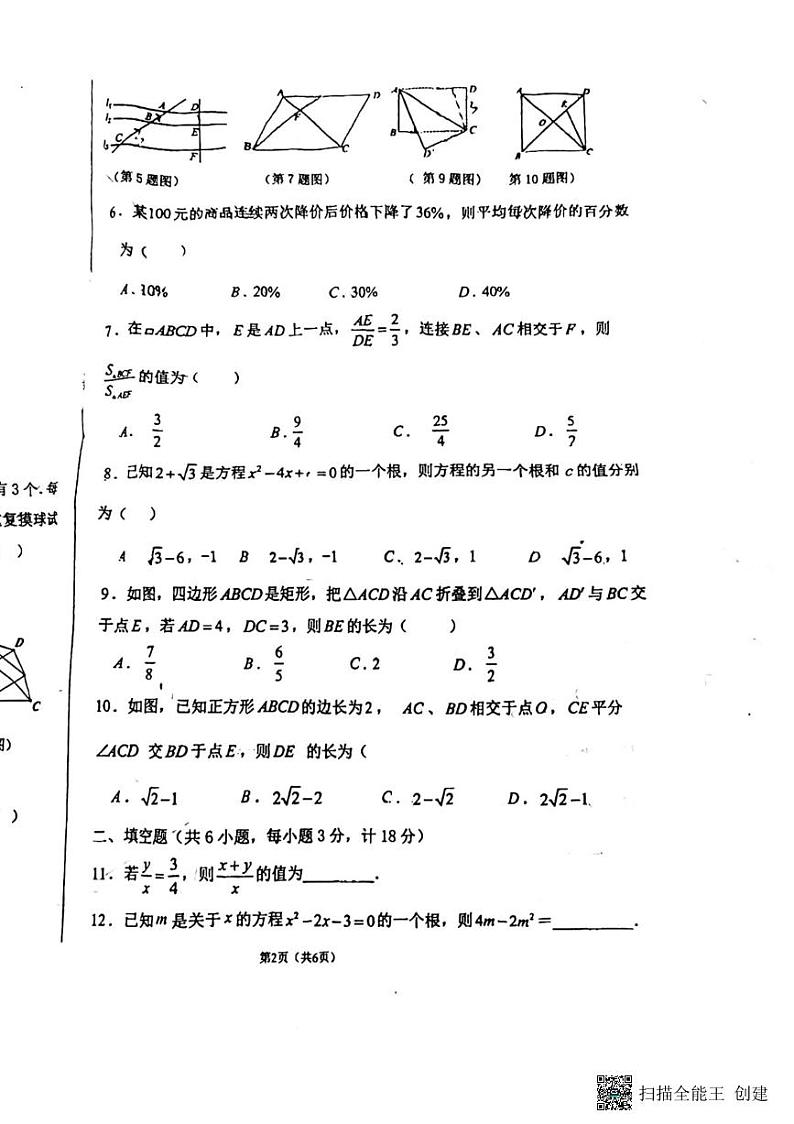 l₁ A D
l₂ B E
l₃ C F
A D F B C
A D B C D'
A D E O B C
（第5题图） （第7题图） （ 第9题图） 第10题图）
6．某100元的商品连续两次降价后价格下降了36%，则平均每次降价的百分数
为（ ）
A、10% B．20% C．30% D．40%
7．在▱ABCD中，E是AD上一点，AE/DE=2/3，连接BE、AC相交于F，则
S△BCF/S△AEF的值为（ ）
A．3/2 B．9/4 C．25/4 D．5/7
8．已知2+√3是方程x²-4x+ =0的一个根，则方程的另一个根和c的值分别
为（ ）
A √3-6，-1 B 2-√3，-1 C．2-√3，1 D √3-6，1
9．如图，四边形ABCD是矩形，把△ACD沿AC折叠到△ACD′，AD′与BC交
于点E，若AD=4，DC=3，则BE的长为（ ）
A．7/8 B．6/5 C．2 D．3/2
10．如图，已知正方形ABCD的边长为2，AC、BD相交于点O，CE平分
∠ACD 交BD于点E，则DE 的长为（
A．√2-1 B．2√2-2 C．2-√2 D．2√2-1
二、填空题（共6小题，每小题3分，计18分）
11．若y/x=3/4，则x+y/x的值为______．
12．已知m是关于x的方程x²-2x-3=0的一个根，则4m-2m²=______．
第2页（共6页）
有3个.每
复摸球试
）
D
C
）
）
扫描全能王 创建